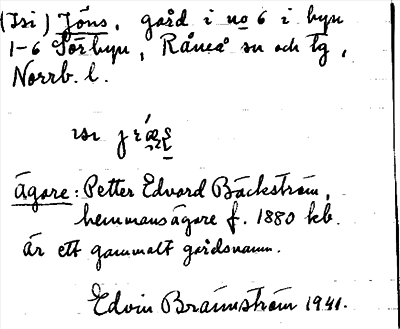 (Isi) Jöns, gård i no 6 i byn
1-6 Sörbyn, Råneå sn och tg,
Norrb. l.
ägare: Petter Edvard Bäckström,
hemmansägare f. 1880 kb.
Är ett gammalt gårdsnamn.
Edvin Brännström 1941.